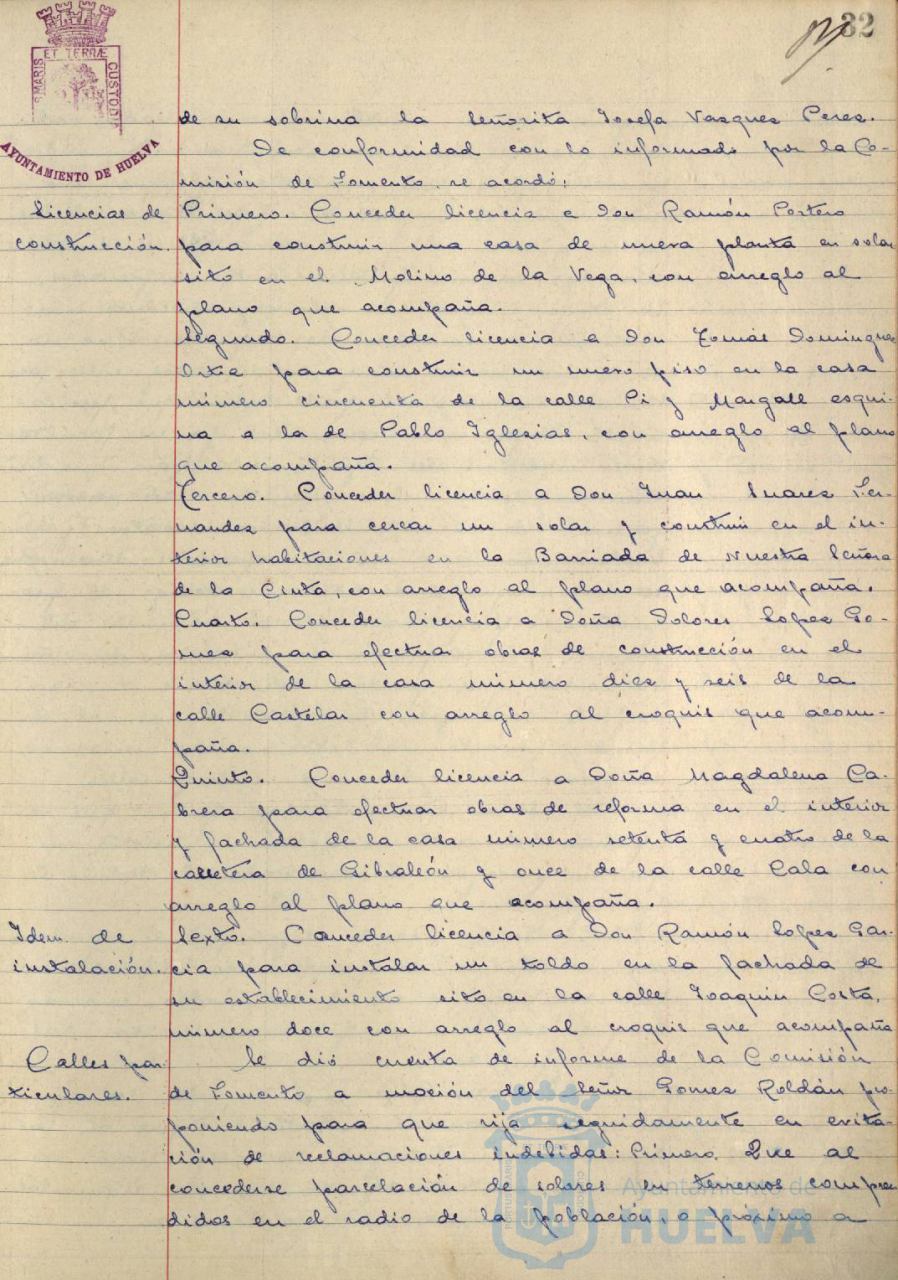 32
ET TERRÆ
MARIS
CUSTODI
AYUNTAMIENTO DE HUELVA
de su sobrina la Señorita Josefa Vazquez Perez.
De conformidad con lo informado por la Co-
misión de Fomento, se acordó:
Licencias de
construcción.
Primero. Conceder licencia a Don Ramón Portero
para construir una casa de nueva planta en solar
sito en el Molino de la Vega, con arreglo al
plano que acompaña.
Segundo. Conceder licencia a Don Tomás Dominguez
Ortiz para construir un nuevo piso en la casa
número cincuenta de la calle Pi y Margall esqui-
na a la de Pablo Iglesias, con arreglo al plano
que acompaña.
Tercero. Conceder licencia a Don Juan Suarez Fer-
nandez para cercar un solar y construir en el in-
terior habitaciones en la Barriada de Nuestra Señora
de la Cinta, con arreglo al plano que acompaña.
Cuarto. Conceder licencia a Doña Dolores Lopez Go-
mez para efectuar obras de construcción en el
interior de la casa número diez y seis de la
calle Castelar con arreglo al croquis que acom-
paña.
Quinto. Conceder licencia a Doña Magdalena Ca-
brera para efectuar obras de reforma en el interior
y fachada de la casa número setenta y cuatro de la
carretera de Gibraleón y once de la calle Cala con
arreglo al plano que acompaña.
Idem. de
instalación.
Sexto. Conceder licencia a Don Ramón Lopez Gar-
cia para instalar un toldo en la fachada de
su establecimiento sito en la calle Joaquin Costa,
número doce con arreglo al croquis que acompaña
Calles par-
ticulares.
Se dió cuenta de informe de la Comisión
de Fomento a moción del Señor Gomez Roldán pro
poniendo para que rija seguidamente en evita-
ción de reclamaciones indebidas: Primero. Que al
concederse parcelación de solares en terrenos compren
didos en el radio de la población, o proximo a
Ayuntamiento de
HUELVA